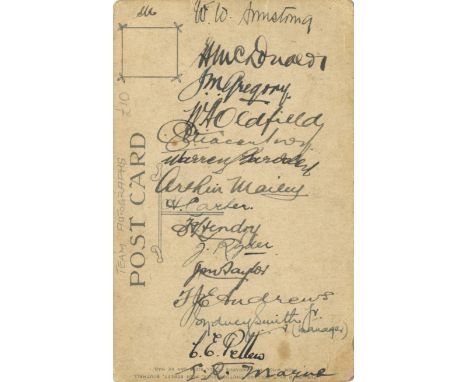 W. W. Armstrong
H McDonald
J.M. Gregory.
W A Oldfield
Warren Bardsley
Arthur Mailey
H. Carter.
H Hendry
J. Ryder
J M Taylor
T J E Andrews
Sydney Smith Jr.
(Manager)
C. E. Pellew
Mayne
POST CARD
TEAM AUTOGRAPHS
£10